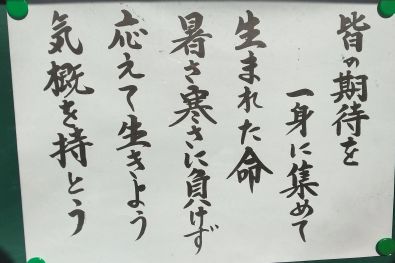 皆の期待を
一身に集めて
生まれた命
暑さ寒さに負けず
応えて生きよう
気概を持とう